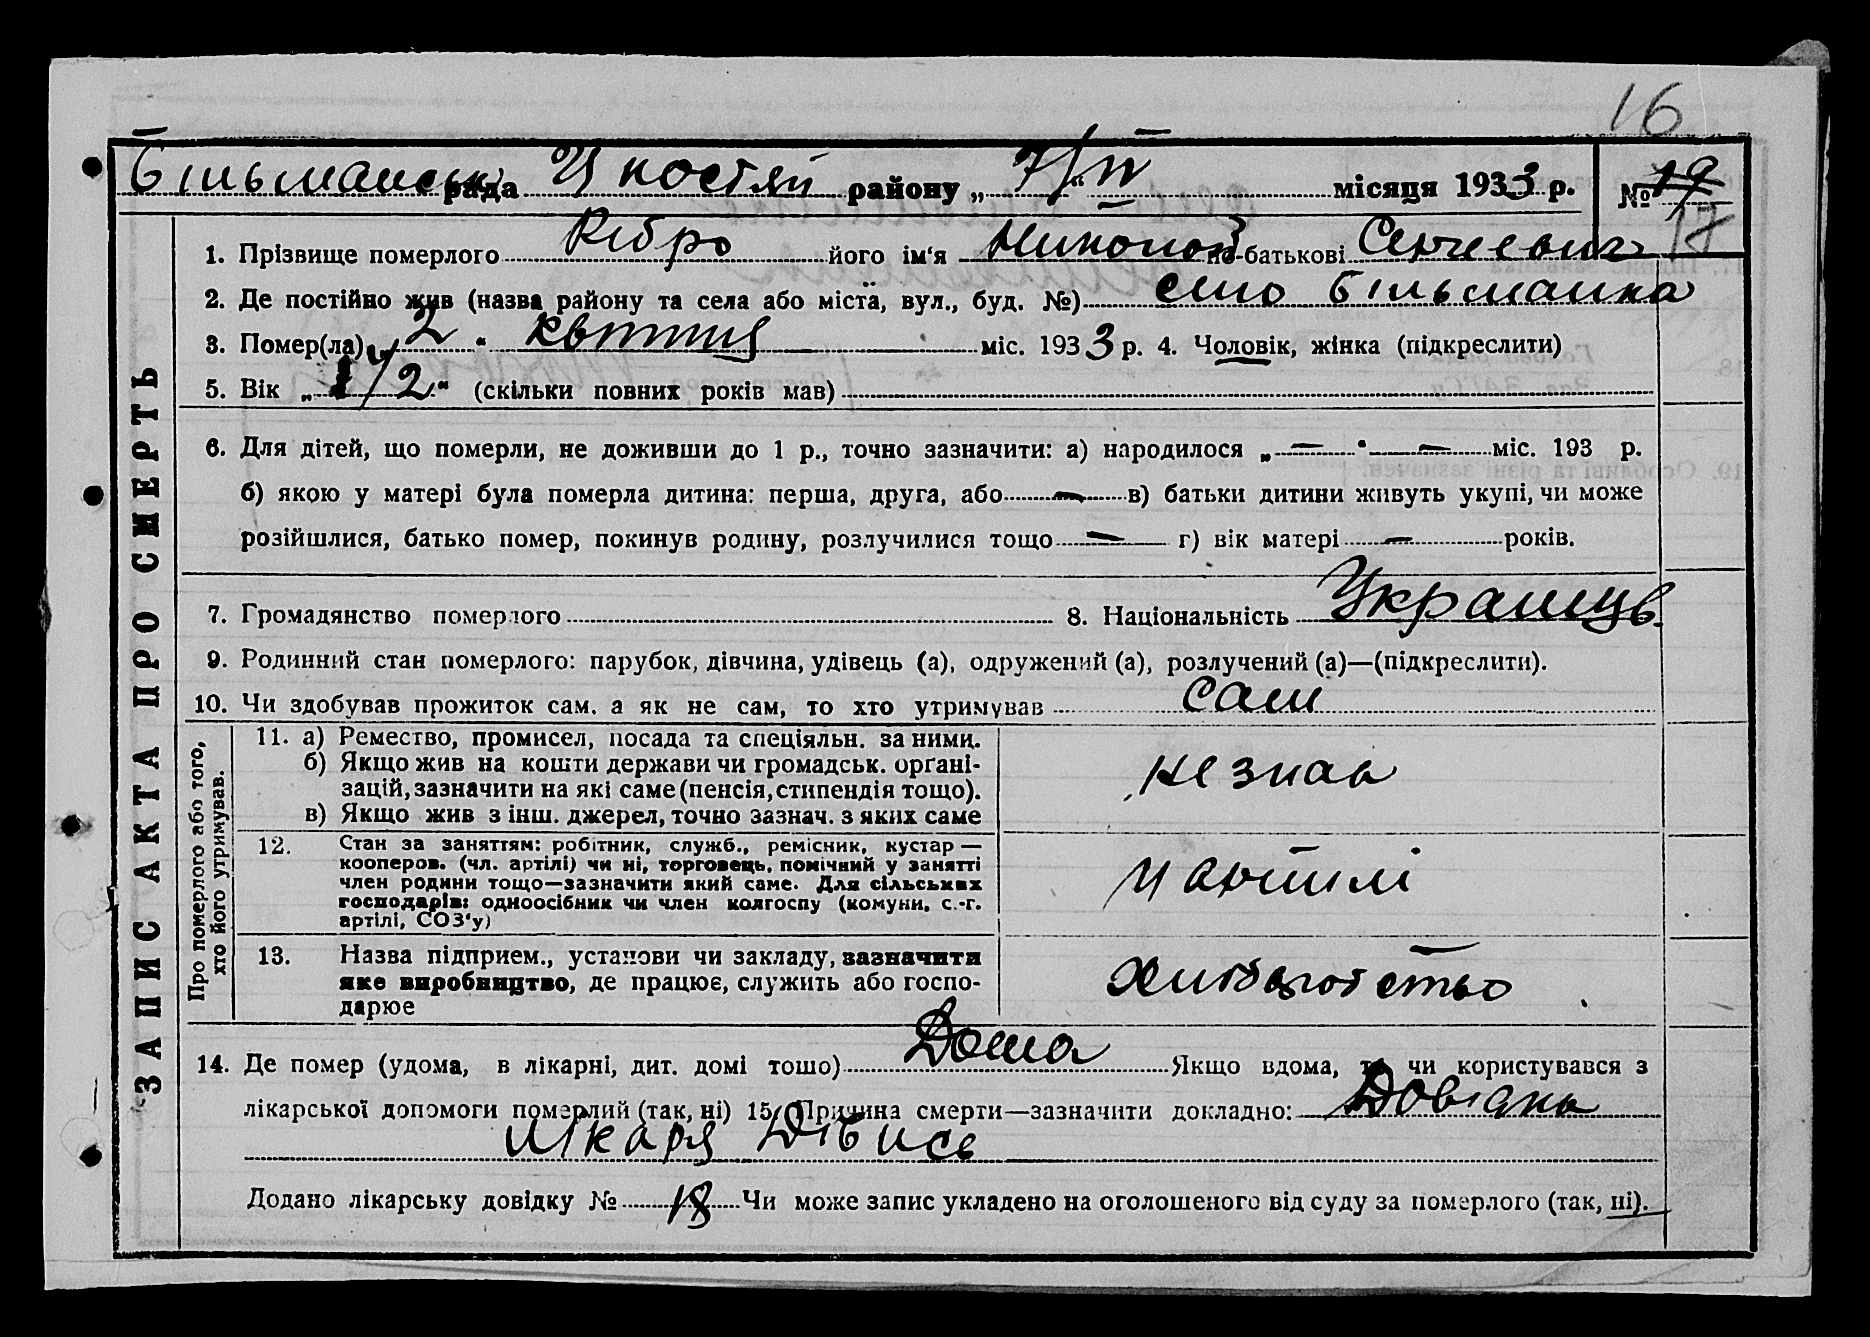 16
Більманськ рада Ц костян району „ 7/IV " місяця 1933 р. № 19
17
1. Прізвище померлого Ребро його ім'я Никопой по-батькові Сергіевич
2. Де постійно жив (назва району та села або міста, вул., буд. №) село Більманка
3. Помер(ла) „ 2 " квітня міс. 1933 р. 4. Чоловік, жінка (підкреслити)
5. Вік „ 1/2 " (скільки повних років мав)
6. Для дітей, що померли, не доживши до 1 р., точно зазначити: а) народилося „ — " — міс. 193 р.
б) якою у матері була померла дитина: перша, друга, або — в) батьки дитини живуть укупі, чи може
розійшлися, батько помер, покинув родину, розлучилися тощо — г) вік матері — років.
7. Громадянство померлого 8. Національність Українць
9. Родинний стан померлого: парубок, дівчина, удівець (а), одружений (а), розлучений (а)—(підкреслити).
10. Чи здобував прожиток сам, а як не сам, то хто утримував сам
ЗАПИС АКТА ПРО СМЕРТЬ
Про померлого або того, хто його утримував.
11. а) Ремество, промисел, посада та спеціяльн. за ними.
б) Якщо жив на кошти держави чи громадськ. органі-
зацій, зазначити на які саме (пенсія, стипендія тощо).
в) Якщо жив з інш. джерел, точно зазнач. з яких саме
не знав
12. Стан за заняттям: робітник, служб., ремісник, кустар —
кооперов. (чл. артілі) чи ні, торговець, помічний у занятті
член родини тощо—зазначити який саме. Для сільських
господарів: одноосібник чи член колгоспу (комуни, с.-г.
артілі, СОЗ'у)
Ц артилі
13. Назва підприєм., установи чи закладу, зазначити
яке виробництво, де працює, служить або госпо-
дарює
хлиборобство
14. Де помер (удома, в лікарні, дит. домі тощо) Дома Якщо вдома, то чи користувався з
лікарської допомоги померлий (так, ні) 15. Причина смерти—зазначити докладно: Довідка
лікаря
Додано лікарську довідку № 18 Чи може запис укладено на оголошеного від суду за померлого (так, ні).